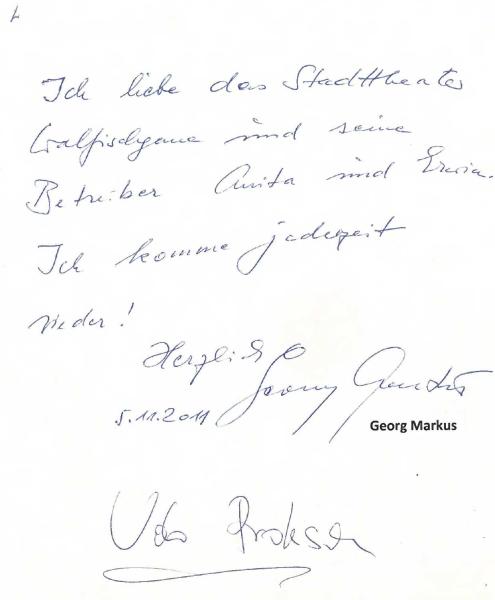 Ich liebe das Stadttheater
Walfischgasse und seine
Betreiber Anita und Erwin.
Ich komme jederzeit
wieder!
Herzlich
Georg Markus
5.11.2011
Georg Markus
Udo Proksch